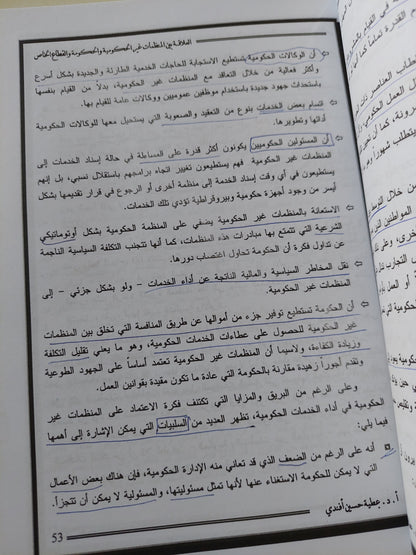 العلاقة بين المنظمات غير الحكومية والحكومة والقطاع الخاص
أن الوكالات الحكومية يستطيع الاستجابة للحاجات الخدمية الطارئة والجديدة بشكل أسرع
وأكثر فعالية من خلال التعاقد مع المنظمات غير الحكومية، بدلاً من القيام بنفسها
باستحداث جهود جديدة باستخدام موظفين عموميين ووكالات عامة للقيام بها.
اتسام بعض الخدمات بنوع من التعقيد والصعوبة التي يستحيل معها للوكالات الحكومية
أدائها وتطويرها.
أن المسئولين الحكوميين يكونون أكثر قدرة على المساءلة في حالة إسناد الخدمات إلى
المنظمات غير الحكومية فهم يستطيعون تغيير اتجاه برامجهم باستقلال نسبي، بل إنهم
يستطيعون في أي وقت إسناد الخدمة إلى منظمة أخرى أو الرجوع في قرار تقديمها بشكل
أيسر من وجود أجهزة حكومية وبيروقراطية تؤدي تلك الخدمات.
الاستعانة بالمنظمات غير الحكومية يضفي على المنظمة الحكومية بشكل أوتوماتيكي
الشرعية التي تتمتع بها مبادرات هذه المنظمات، كما أنها تتجنب التكلفة السياسية الناجمة
عن تداول فكرة أن الحكومة تحاول اغتصاب دورها.
نقل المخاطر السياسية والمالية الناتجة عن أداء الخدمات - ولو بشكل جزئي - إلى
المنظمات غير الحكومية.
أن الحكومة تستطيع توفير جزء من أموالها عن طريق المنافسة التي تخلق بين المنظمات
غير الحكومية للحصول على عطاءات الخدمات الحكومية، وهو ما يعني تقليل التكلفة
وزيادة الكفاءة، ولاسيما أن المنظمات غير الحكومية تعتمد أساساً على الجهود الطوعية
وتقدم أجوراً زهيدة مقارنة بالحكومة التي عادة ما تكون مقيدة بقوانين العمل.
وعلى الرغم من البريق والمزايا التي تكتنف فكرة الاعتماد على المنظمات غير
الحكومية في أداء الخدمات الحكومية، تظهر العديد من السلبيات التي يمكن الإشارة إلى أهمها
فيما يلي:
أنه على الرغم من الضعف الذي قد تعاني منه الإدارة الحكومية، فإن هناك بعض الأعمال
التي لا يمكن للحكومة الاستغناء عنها لأنها تمثل مسئوليتها، والمسئولية لا يمكن أن تتجزأ.
أ. د. عطية حسين أفندي
53